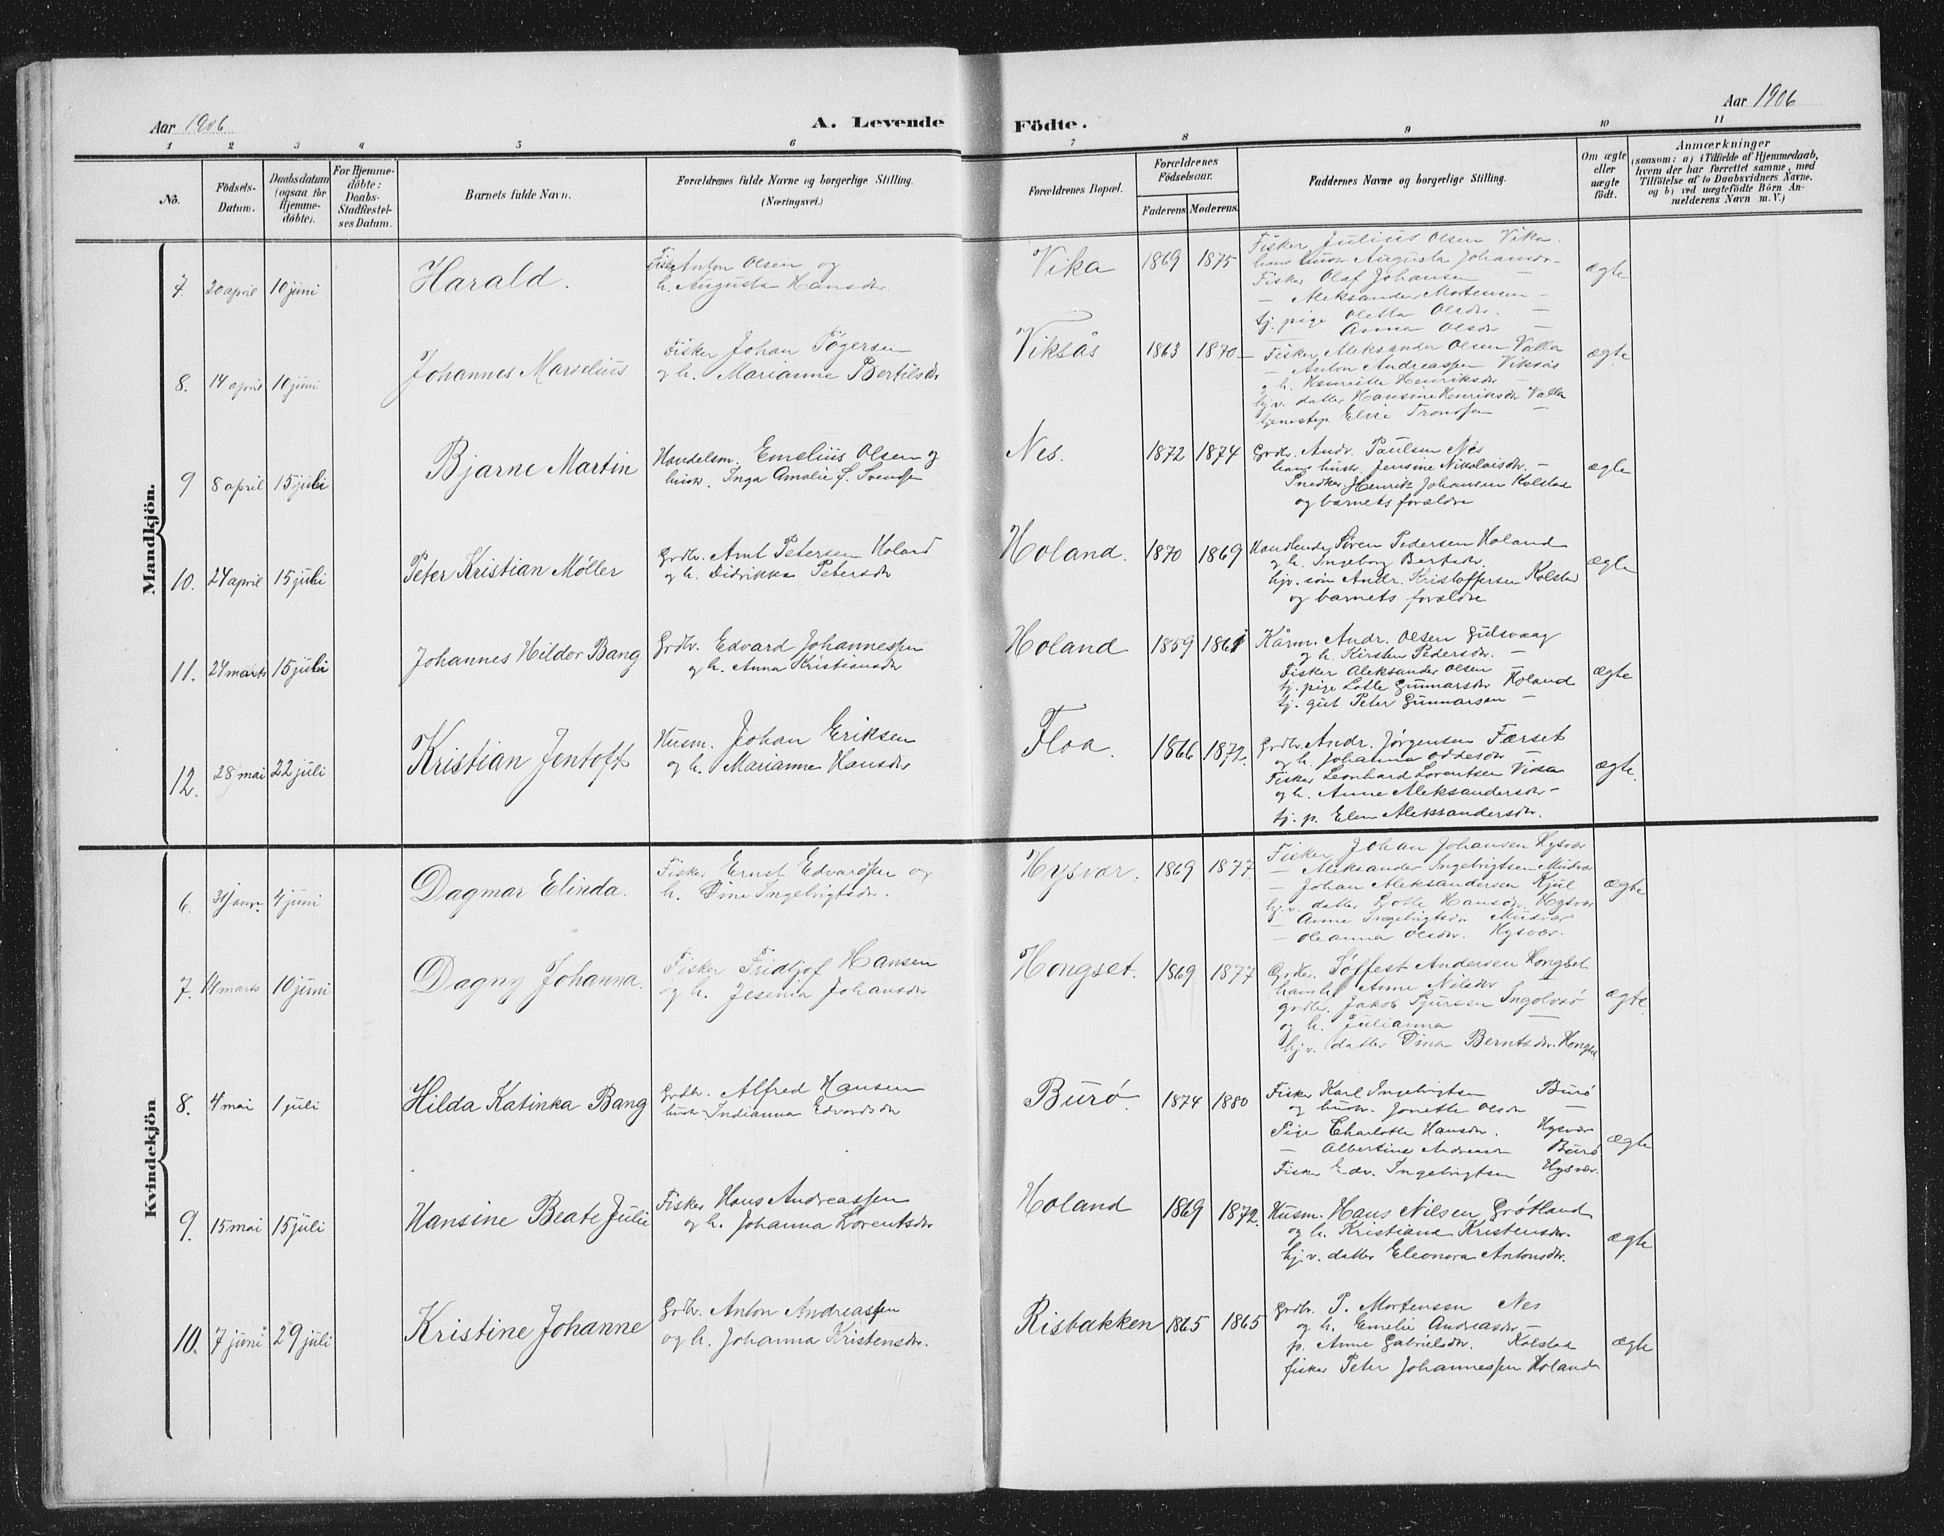 Aar 1906
A. Levende
Födte.
Aar 1906
1 2 3 4 5 6 7 8 9 10 11
No.
Födsels-
Datum.
Daabsdatum
(ogsaa for
Hjemme-
döbte).
For Hjemme-
döbte:
Daabs-
Stadfestel-
ses Datum.
Barnets fulde Navn.
Forældrenes fulde Navne og borgerlige Stilling.
(Næringsvei.)
Forældrenes Bopæl.
Forældrenes
Födselsaar.
Faderens. Moderens.
Faddernes Navne og borgerlige Stilling.
Om ægte
eller
uægte
födt.
Anmærkninger
(saasom: a) i Tilfælde af Hjemmedaab,
hvem der har forrettet samme, med
Tilföielse af to Daabsvidners Navne.
og b) ved uægtefödte Börn An-
melderens Navn m. V.)
Mandkjön.
7. 20 april 10 juni Harald.
Fisk. Anton Olsen og
h. Augusta Hansdr.
Vika 1869 1875
Fisker Julius Olsen Vika.
hans hustr Augusta Johansdr
Fisker Olaf Johansen
— Aleksander Mortensen —
tj. pige Oletta Olsdr. —
— Anna Olsdr —
ægte
8. 14 april 10 juni Johannes Marselius
Fisker Johan Tögersen
og h. Marianne Bertilsdr
Viksås 1863 1870
— Fisker Aleksander Olsen Valla
— Anton Andreassen Viksås
og h. Henriette Henriksdr —
hjv. datter Hansine Henriksdr Valla
tjenestep Elise Tronsen —
ægte
9 8 april 15 juli Bjarne Martin
Handelsm. Emelius Olsen og
hustr. Inga Amalie f. Svendsen
Nes. 1872 1874
Grdbr. Andr. Paulsen Nes
hans hustr. Jensine Nikolaisdr. —
Snedker Henrik Johansen Kolstad
og barnets forældre
ægte
10. 24 april 15 juli Peter Kristian Møller
Grdbr. Arnt Petersen Holand
og h. Didrikka Petersdr
Holand. 1870 1869
Handlende Sören Pedersen Holand
og h. Ingeborg Bertsdr.
hjv. søn Andr. Kristoffersen Kolstad
og barnets forældre
ægte
11. 24 marts 15 juli Johannes Hildor Bang
Grdbr. Edvard Johannessen
og h. Anna Kristiansdr
Holand 1859 1861
Kårm. Andr. Olsen Gulsvaag
og h. Kirsten Pedersdr. —
Fisker Aleksander Olsen
tj. pige Lotte Gunnarsdr Holand
tj. gut Peter Gunnarsen —
ægte
12. 28 mai 22 juli Kristian Jentoft
Husm. Johan Eriksen
og h. Marianne Hansdr
Floa. 1866 1872.
Grdbr. Andr. Jørgensen Færset
og h. Johanna Oddesdr
Fisker Leonhard Lorentsen Visa
og h. Anne Aleksandersdr —
tj. p. Elen Aleksandersdr.
ægte.
Kvindekjön
6. 31 janr. 4 juni Dagmar Elinda.
Fisker Ernst Edvardsen og
h. Dine Ingebrigtsdr.
Hysvær. 1869 1877.
Fisker Johan Johansen Hysvær
— Aleksander Ingebrigtsen Musvær
— Johan Aleksandersen Kjul
hj. v. datter Lotte Hansdr. Hysvær
— Anne Ingebrigtsdr Musvær
— Oleanna Olsdr. Hysvær.
ægte
7. 14 marts 10 juni Dagny Johanna.
Fisker Fridtjof Hansen
og h. Jesenia Johansdr
Hongset. 1869 1877
Grdbr. Söffest Andersen Hongset
hans h. Anne Nilsdr
grdbr. Jakob Sjursen Ingolvsö
og h. Julianna —
hjv. datter Dina Berntsdr. Hongset
ægte.
8. 4 mai 1 juli Hilda Katinka Bang
Grdbr. Alfred Hansen
hustr Indianna Edvardsdr
Burö. 1874 1880
Fisker Karl Ingebrigtsen Burö
og hustr. Jonette Olsdr —
Pige Charlotte Hansdr. Hysvær
— Albertine Andreasdr Burö
Fisker Edv. Ingebrigtsen Hysvær.
ægte
9. 15 mai 15 juli Hansine Beate Julie
Fisker Hans Andreassen
og h. Johanna Lorentsdr
Holand 1869 1872.
Husm. Hans Nilsen Grötland
og h. Kristiana Kristensdr.
hj. v. datter Eleonora Antonsdr.
ægte
10. 7 juni 29 juli Kristine Johanne
Grdbr. Anton Andreassen
og h. Johanna Kristensdr.
Risbakken 1865 1865
Grdbr. P. Mortensen Nes
og h. Emelie Andreasdr —
p. Anne Gabrielsdr. Kolstad
fisker Peter Johannessen Holand
ægte